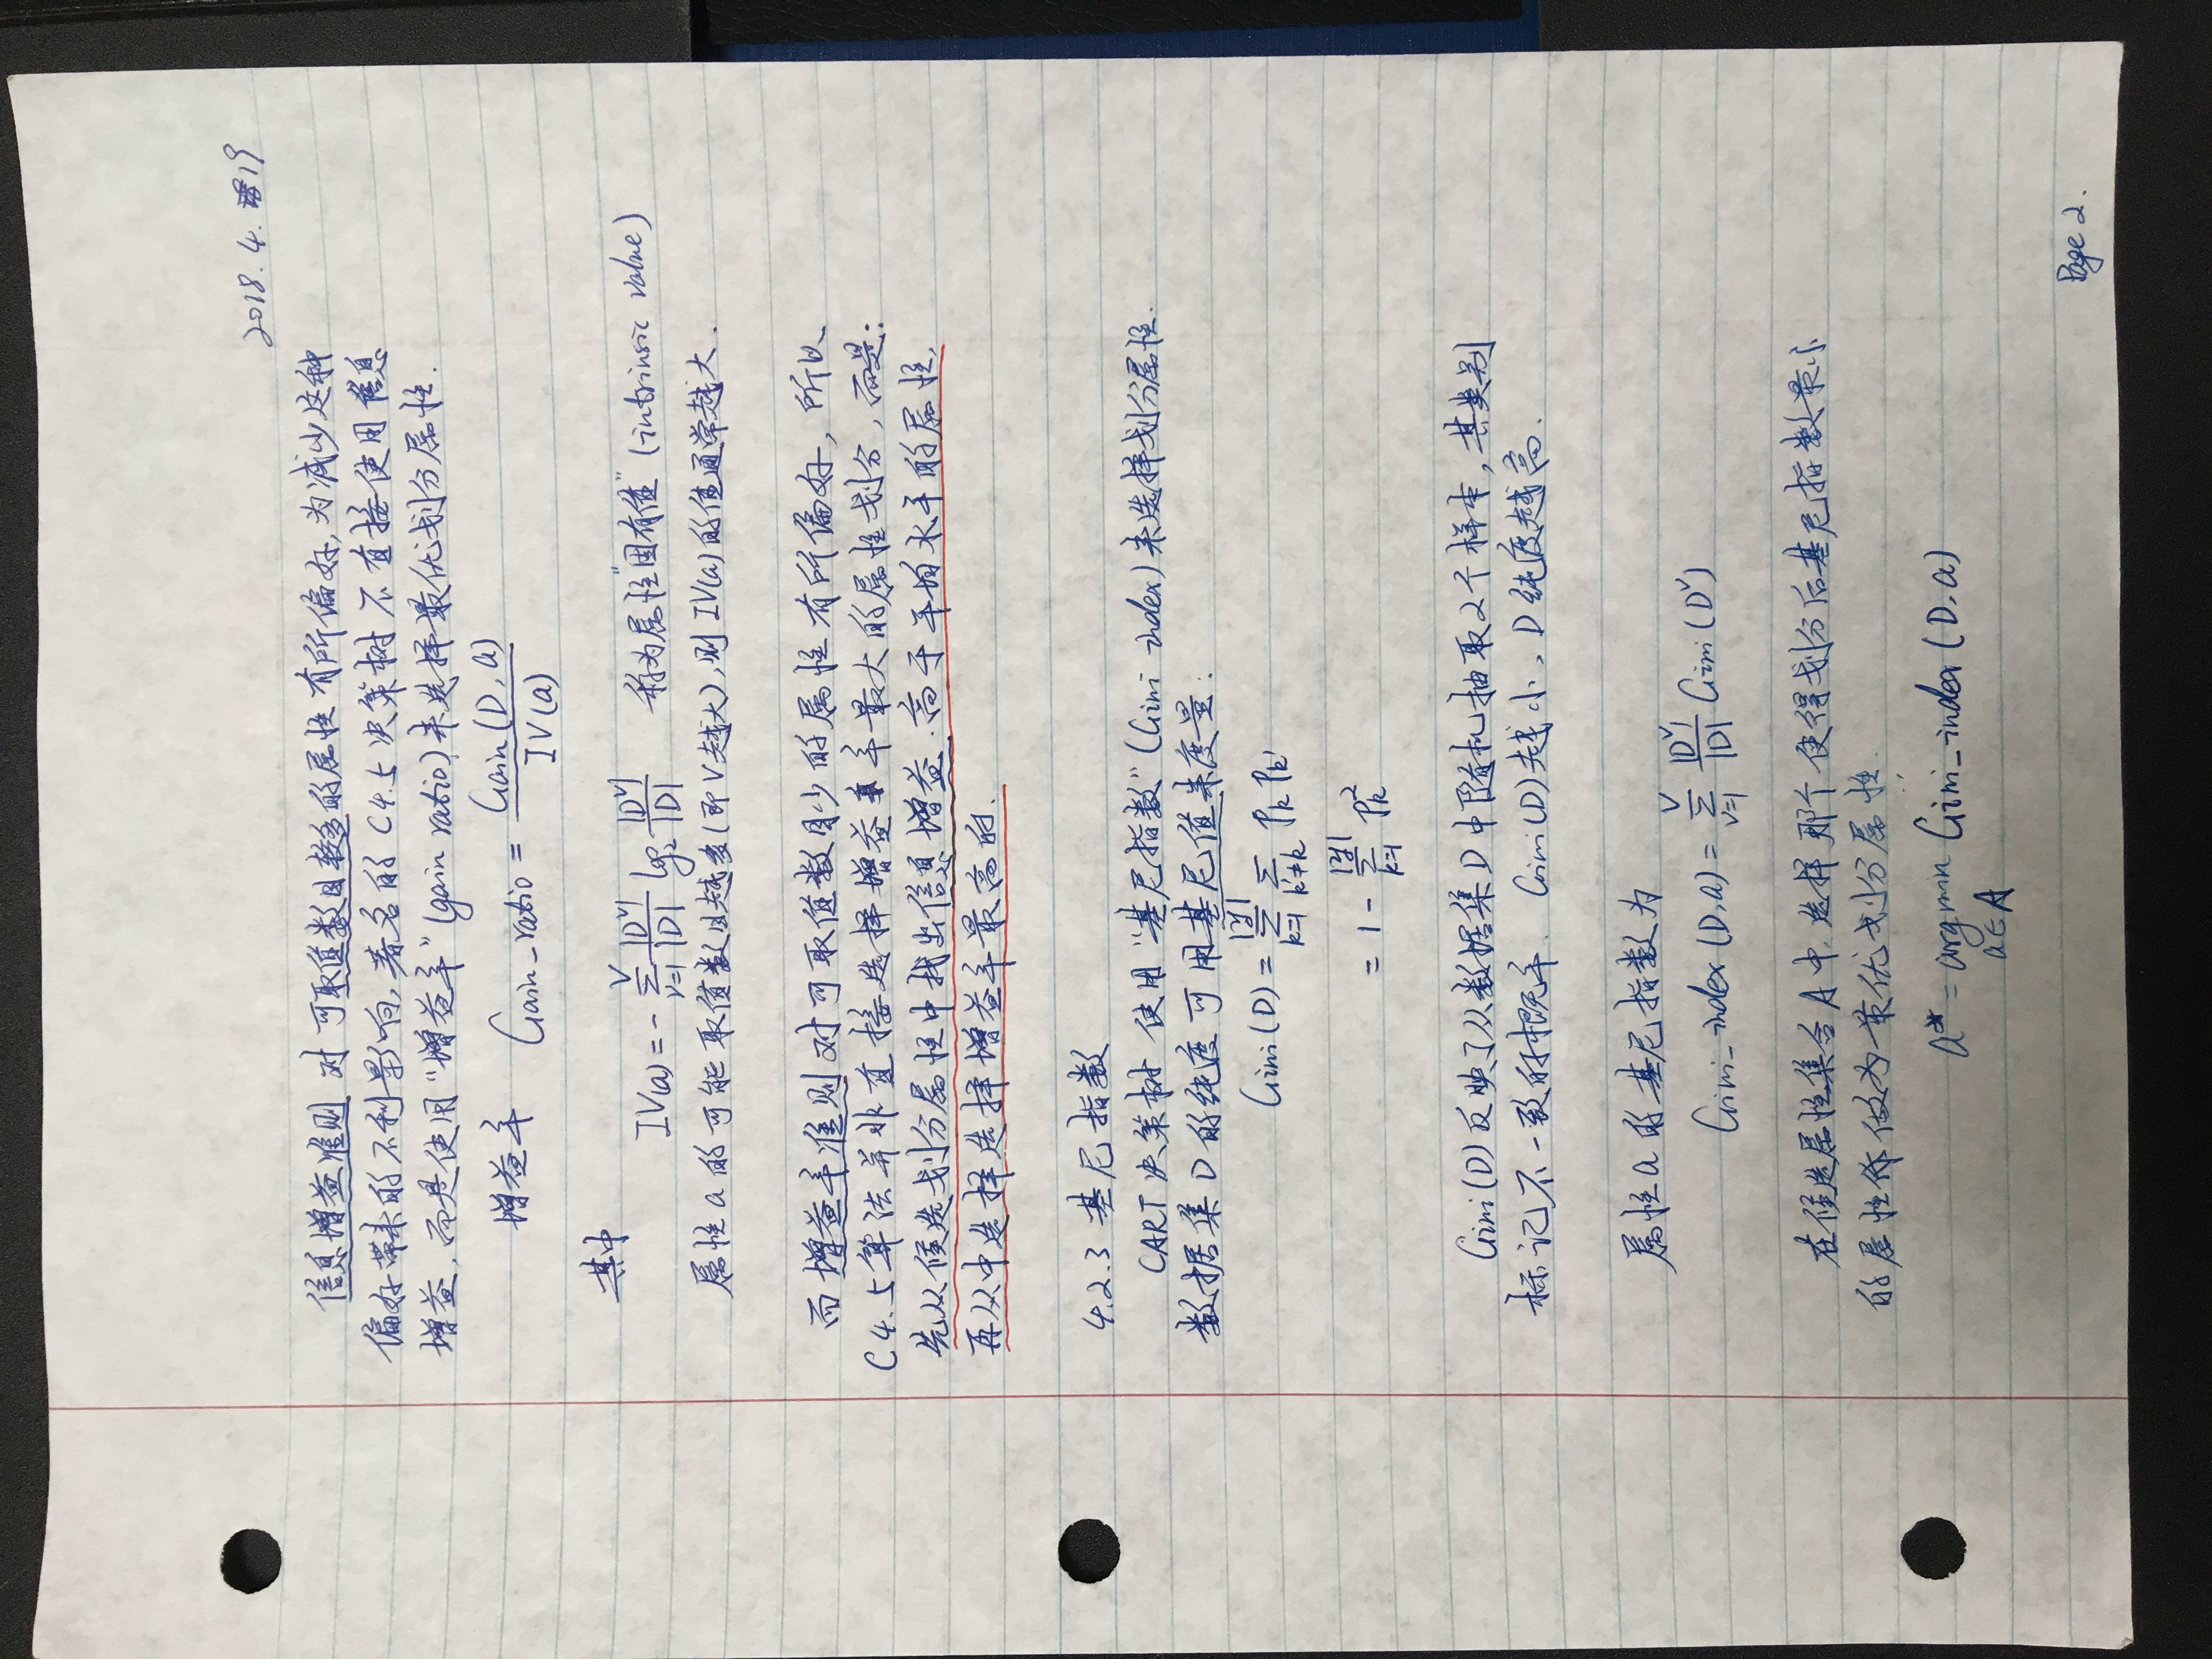 2018.4.19
信息增益准则 对 可取值数目较多的属性有所偏好,为减少这种
偏好带来的不利影响,著名的 C4.5 决策树 不直接使用信息
增益,而是使用“增益率”(gain ratio)来选择最优划分属性.
增益率 Gain_ratio = Gain(D,a) / IV(a)
其中
IV(a) = - ∑_{v=1}^{V} |D^v|/|D| log₂ |D^v|/|D| 称为属性“固有值”(intrinsic value)
属性a的可能取值数目越多(即V越大),则IV(a)的值通常越大.
而增益率准则对可取值数目少的属性有所偏好,所以
C4.5算法并非直接选择增益率最大的属性划分,而是:
先从候选划分属性中找出信息增益高于平均水平的属性,
再从中选择选择增益率最高的.
4.2.3 基尼指数
CART 决策树 使用“基尼指数”(Gini index)来选择划分属性.
数据集D的纯度可用基尼值来度量:
Gini(D) = ∑_{k=1}^{|y|} ∑_{k'≠k} p_k p_k'
= 1 - ∑_{k=1}^{|y|} p_k²
Gini(D)反映了从数据集D中随机抽取2个样本,其类别
标记不一致的概率. Gini(D)越小,D纯度越高.
属性a的基尼指数为
Gini_index(D,a) = ∑_{v=1}^{V} |D^v|/|D| Gini(D^v)
在候选属性集合A中,选择那个使得划分后基尼指数最小
的属性做为最优划分属性.
a* = argmin Gini_index(D,a)
a∈A
Page 2.